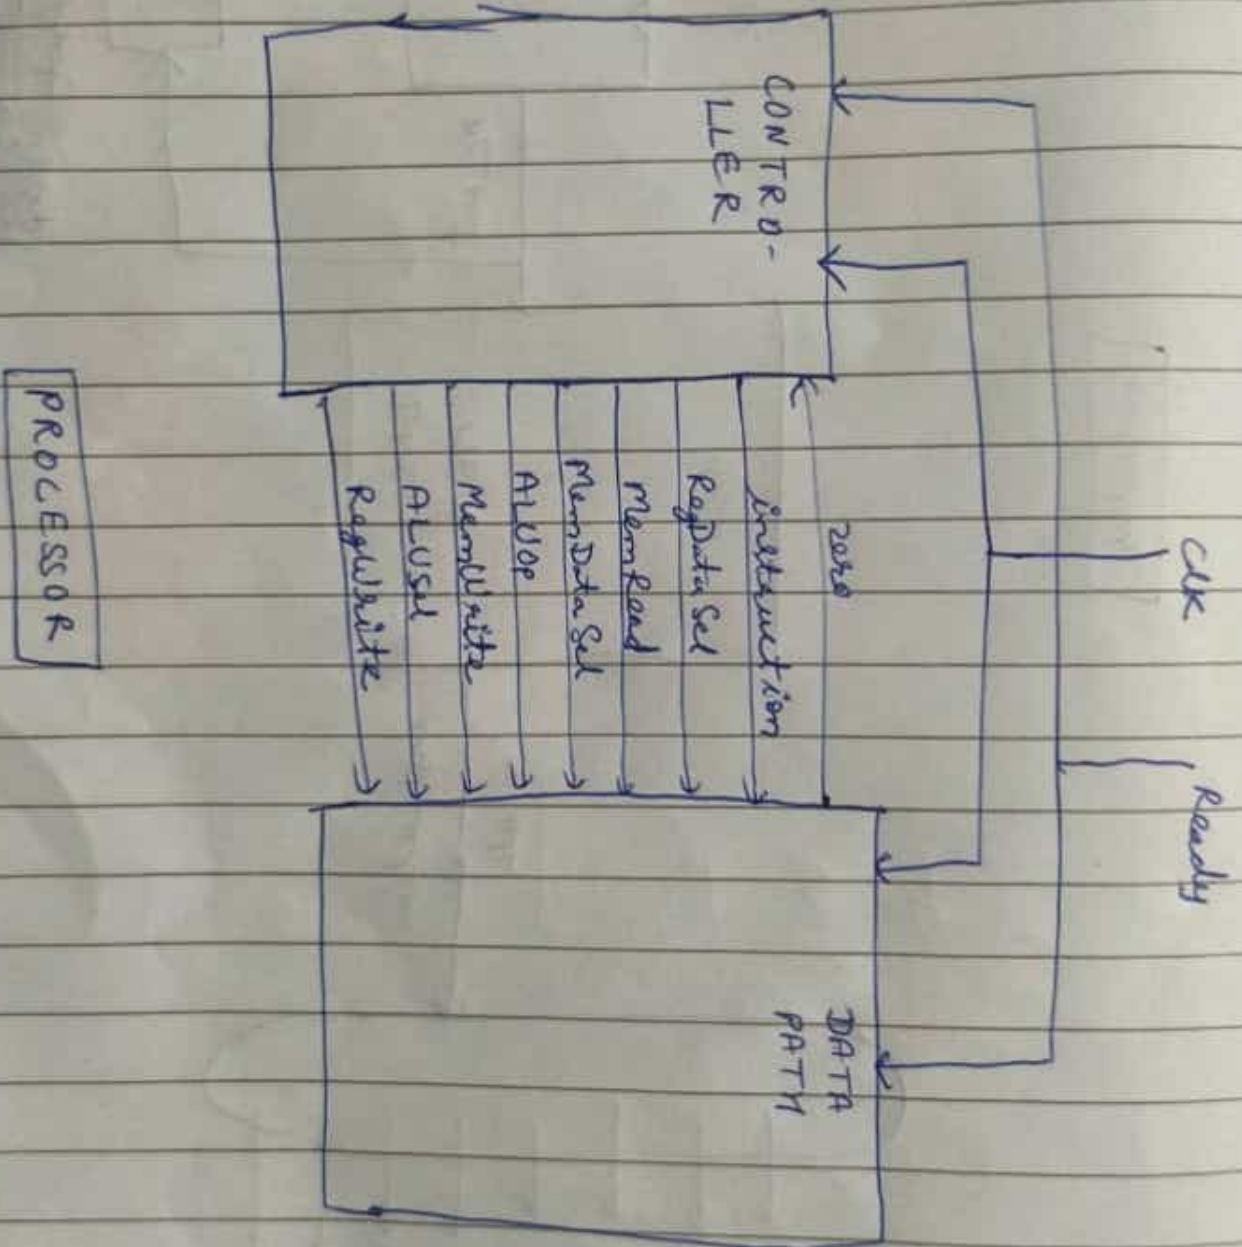 Clk
Ready
CONTRO-
LLER
DATA
PATH
zero
instruction
RegDataSel
MemRead
MemDataSel
ALUOP
MemWrite
ALUSel
RegWrite
PROCESSOR